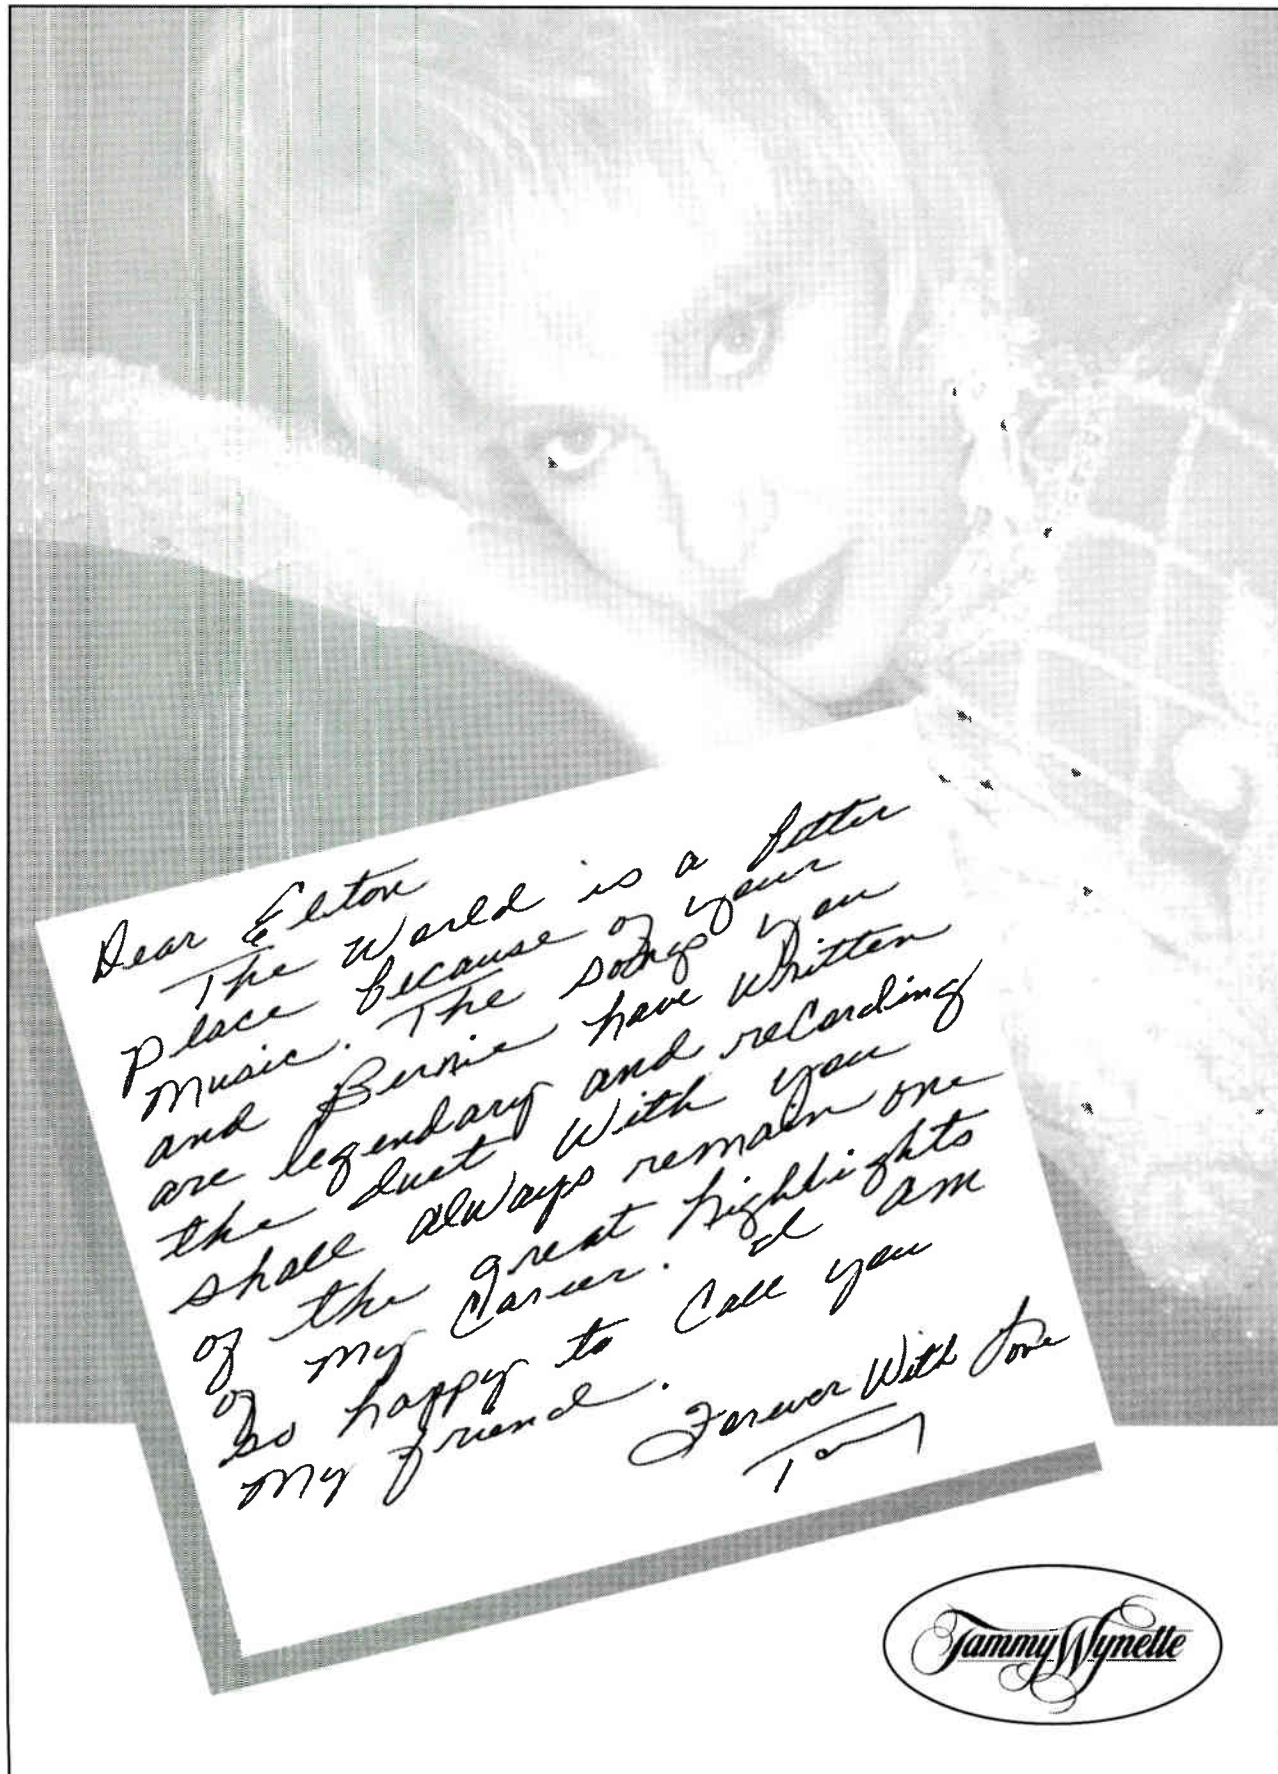 Dear Elton
The World is a better
place because of your
Music. The songs you
and Bernie have written
are legendary and recording
the duet With you
shall always remain one
of the great highlights
of my Career. I am
so happy to Call you
My friend.
Forever With Love
Tammy
Tammy Wynette